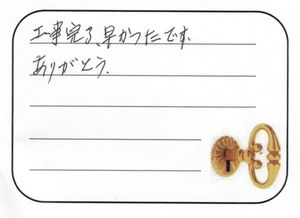 工事完了、早かったです。
ありがとう。